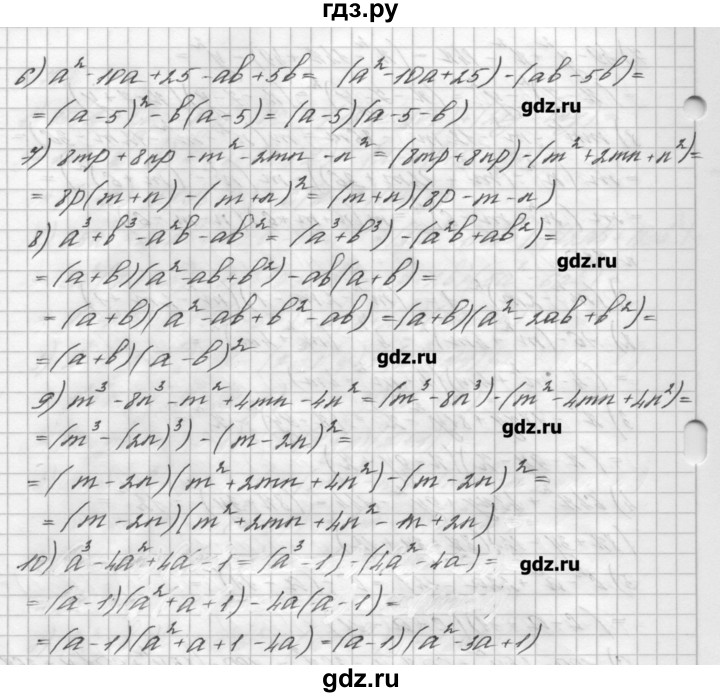 гдз.ру
6) a² - 10a + 25 - ab + 5b = (a² - 10a + 25) - (ab - 5b) =
= (a - 5)² - b(a - 5) = (a - 5)(a - 5 - b)
gdz.ru
7) 8mp + 8np - m² - 2mn - n² = (8mp + 8np) - (m² + 2mn + n²) =
= 8p(m + n) - (m + n)² = (m + n)(8p - m - n)
8) a³ + b³ - a²b - ab² = (a³ + b³) - (a²b + ab²) =
gdz.ru
= (a + b)(a² - ab + b²) - ab(a + b) =
= (a + b)(a² - ab + b² - ab) = (a + b)(a² - 2ab + b²) =
= (a + b)(a - b)²
gdz.ru
9) m³ - 8n³ - m² + 4mn - 4n² = (m³ - 8n³) - (m² - 4mn + 4n²) =
= (m³ - (2n)³) - (m - 2n)² =
gdz.ru
= (m - 2n)(m² + 2mn + 4n²) - (m - 2n)² =
= (m - 2n)(m² + 2mn + 4n² - m + 2n)
10) a³ - 4a² + 4a - 1 = (a³ - 1) - (4a² - 4a) =
gdz.ru
= (a - 1)(a² + a + 1) - 4a(a - 1) =
= (a - 1)(a² + a + 1 - 4a) = (a - 1)(a² - 3a + 1)
gdz.ru